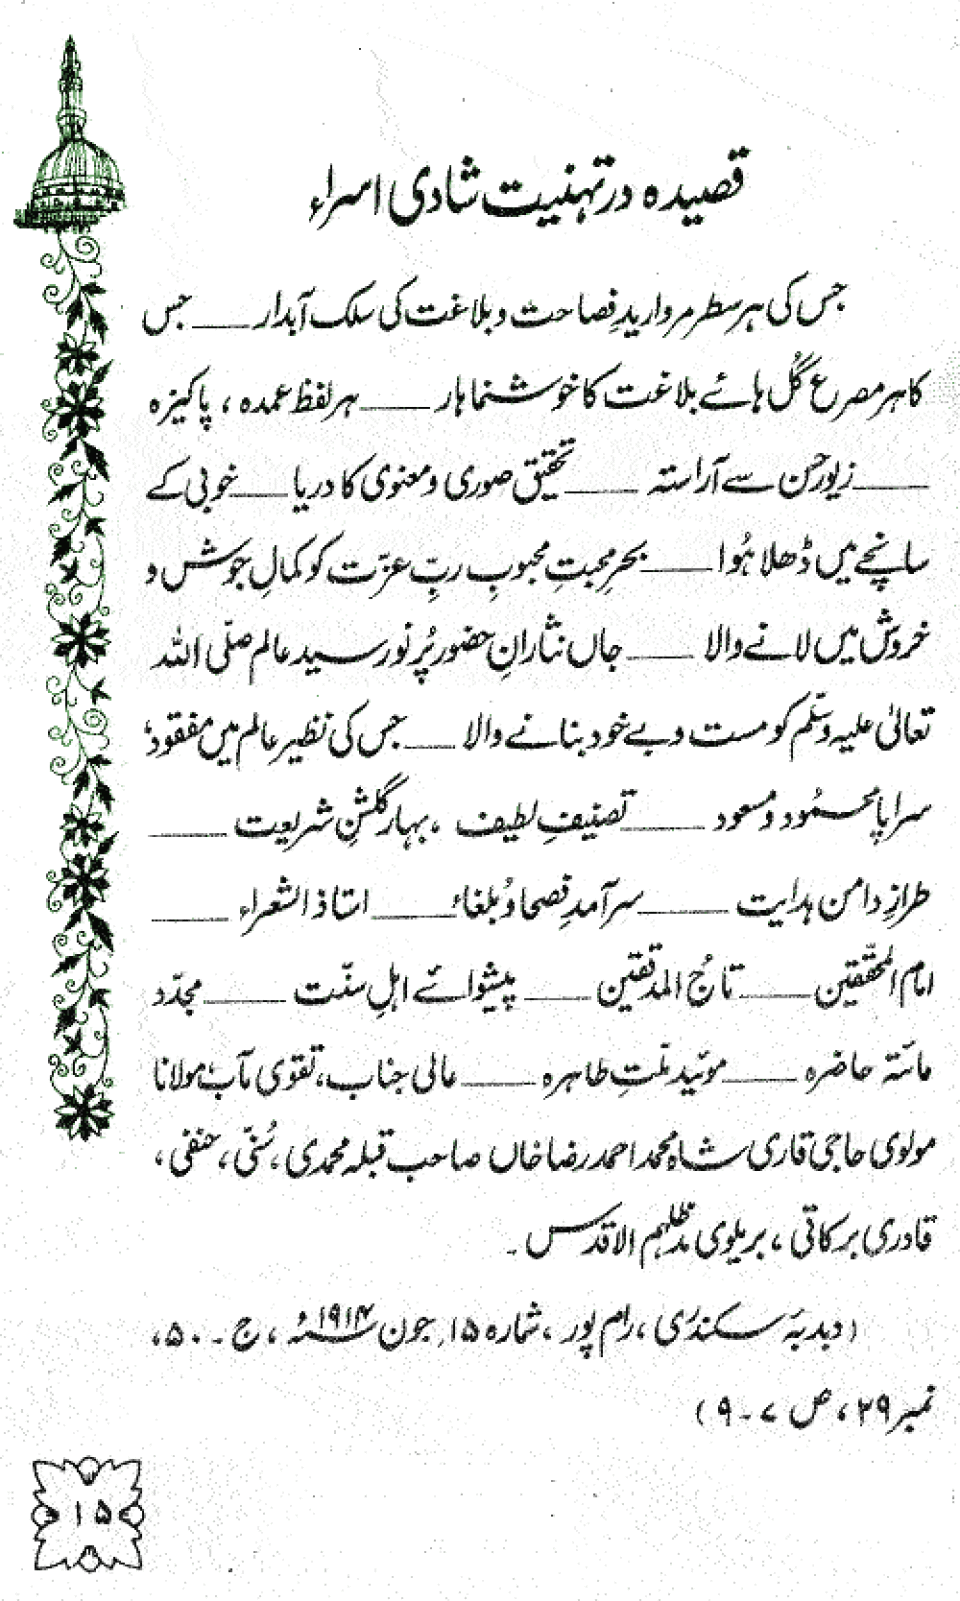 قصیدہ در تہنیت شادی اسراء
جس کی ہر سطر مرواریدِ فصاحت و بلاغت کی سلک آبدار ــــ جس
کا ہر مصرع گُل ہائے بلاغت کا خوشنما ہار ــــ ہر لفظ عمدہ ، پاکیزہ
ــــ زیورِ حسن سے آراستہ ــــ تحقیق صوری و معنوی کا دریا ــــ خوبی کے
سانچے میں ڈھلا ہُوا ــــ بحرِ محبتِ محبوبِ ربِّ عزّت کو کمالِ جوش و
خروش میں لانے والا ــــ جاں نثارانِ حضور پُر نور سید عالم صلّی اللہ
تعالیٰ علیہ وسلّم کو مست و بے خود بنانے والا ــــ جس کی نظیر عالم میں مفقود؛
سراپا محمُود و مسعود ــــ تصنیفِ لطیف ، بہار گلشنِ شریعت ــــ
طرازِ دامن ہدایت ــــ سر آمدِ فصحا و بُلغاء ــــ استاذ الشعراء ــــ
امام المحقّقین ــــ تاجُ المدققین ــــ پیشوائے اہلِ سنّت ــــ مجدّد
مائتہ حاضرہ ــــ موئید ملّتِ طاہرہ ــــ عالی جناب، تقوی مآب مولانا
مولوی حاجی قاری شاہ محمد احمد رضا خاں صاحب قبلہ محمدی ، سُنّی ، حنفی ،
قادری برکاتی ، بریلوی مدظلہم الاقدس ۔
( دبدبۂ سکندری ، رام پور ، شمارہ ۱۵؍ جون ۱۹۱۴ء ، ج ۔ ۵۰ ،
نمبر ۲۹ ، ص ۷ ۔ ۹ )
۱۵